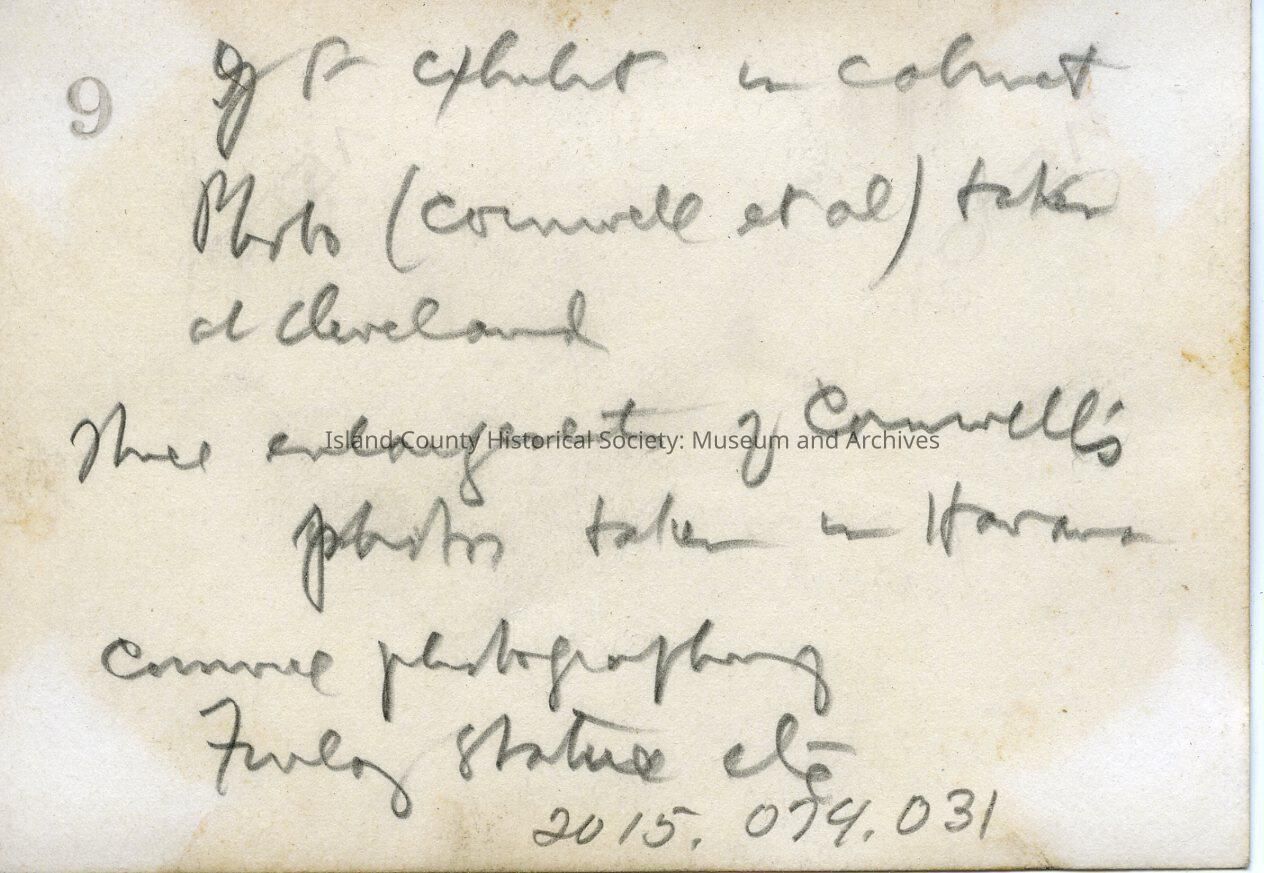 9
Yf exhibit in cabinet
Photo (Cornwell et al) taken
at Cleveland
Three enlargements of Cornwell's
Island County Historical Society: Museum and Archives
photos taken in Havana
Cornwell photographing
Finlay Statue etc
2015.074.031